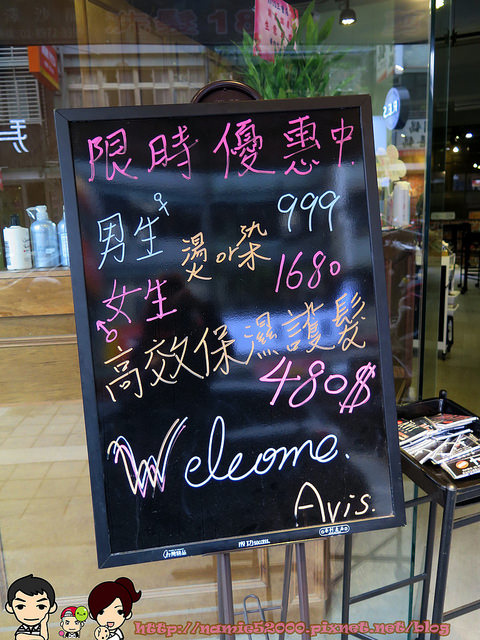 限時優惠中.
男生♀ 999
燙or染
♂女生 1680
高效保濕護髮
480$
Welcome.
Avis.
http://namie52000.pixnet.net/blog